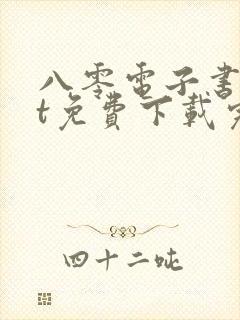 八零電子書
t免費下載完
四十二吨